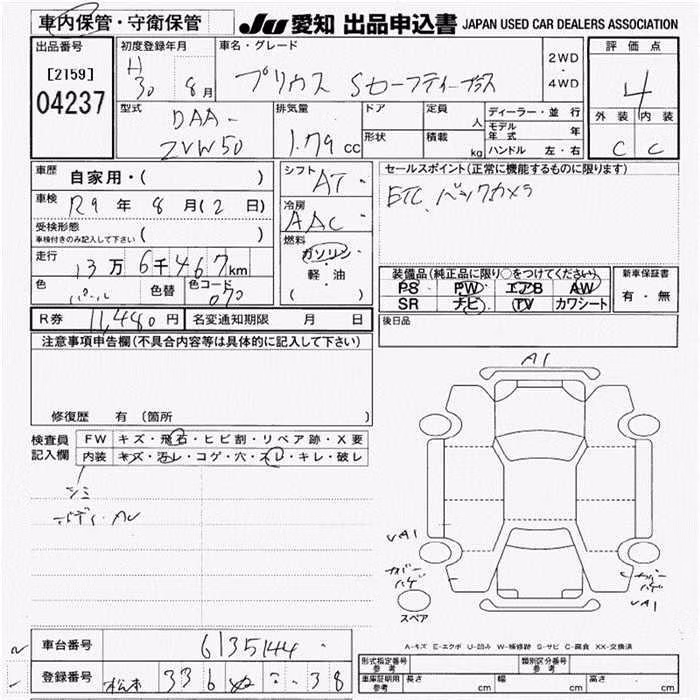 車内保管・守衛保管
JU 愛知 出品申込書 JAPAN USED CAR DEALERS ASSOCIATION
出品番号
[2159]
04237
初度登録年月
H 30 年 8 月
車名・グレード
プリウス Sセーフティープラス
2WD
・
4WD
評価点
4
外装 内装
C C
型式
DAA-
ZVW50
排気量
1.79 cc
ドア
形状
定員
人
積載
kg
ディーラー・並行
モデル年式 年
ハンドル 左・右
車歴 自家用・( )
車検 R9 年 8 月(2 日)
受検形態
車検付きのみ記入して下さい ( )
走行 13万6千467km
色 パール 色替 色コード 070
シフト AT
冷房 AAC
燃料
ガソリン
・
軽・油
( )
セールスポイント(正常に機能するものに限ります)
ETC、バックカメラ
装備品(純正品に限り○をつけてください)
PS PW エアB AW
SR ナビ TV カワシート
新車保証書
有・無
R券 11,480 円 名変通知期限 月 日
後日品
注意事項申告欄(不具合内容等は具体的に記入して下さい)
修復歴 有 〔箇所
検査員記入欄
FW キズ・飛石・ヒビ割・リペア跡・X要
内装 キズ・汚レ・コゲ・穴・スレ・キレ・破レ
シミ
ボディ・
A1
VA1
カバーハゲ
カバーハゲ
VA1
スペア
A-キズ E-エクボ U-凹み W-補修跡 S-サビ C-腐食 XX-交換済
車台番号 6135144
登録番号 松本 336 ぬ ・・38
形式指定番号 参考
類別区分番号 参考
車庫証明用 参考 長さ cm 幅 cm 高さ cm